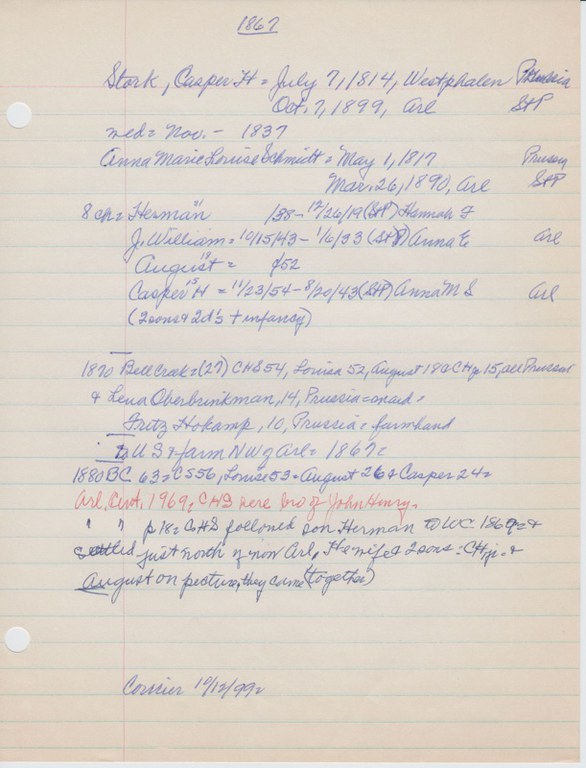 1867
Stork, Casper H = July 7, 1814, Westphalen Prussia
Oct. 7, 1899, Arl StP
med = Nov. - 1837
Anna Marie Louise Schmidt = May 1, 1817 Prussia
Mar. 26, 1890, Arl StP
8 ch = Herman 31 /38 - 12/26/19 (StP) Hannah F
J. William = 10/15/43 - 1/6/33 (StP) Anna E Arl
August 18 = /52
Casper 15 H = 11/23/54 - 8/20/43 (StP) Anna M S Arl
(2 sons & 2 d's + infancy)
1870 Bell Creek = (27) CHS 54, Louisa 52, August 18 & CHjr 15, all Prussia
& Lena Oberbrinkman, 14, Prussia = maid =
Fritz Hokamp, 10, Prussia = farmhand
To US & farm NW of Arl = 1867 =
1880 BC 63 = CS 56, Louise 53 = August 26 & Casper 24 =
Arl. Cent, 1969, CHS were bro of John Henry,
" " p 18 = CHS followed son Herman to WC 1869 = &
settled just north of now Arl, He wife & 2 sons = CHjr. &
August on picture, they came (together)
Corrier 10/12/99 =